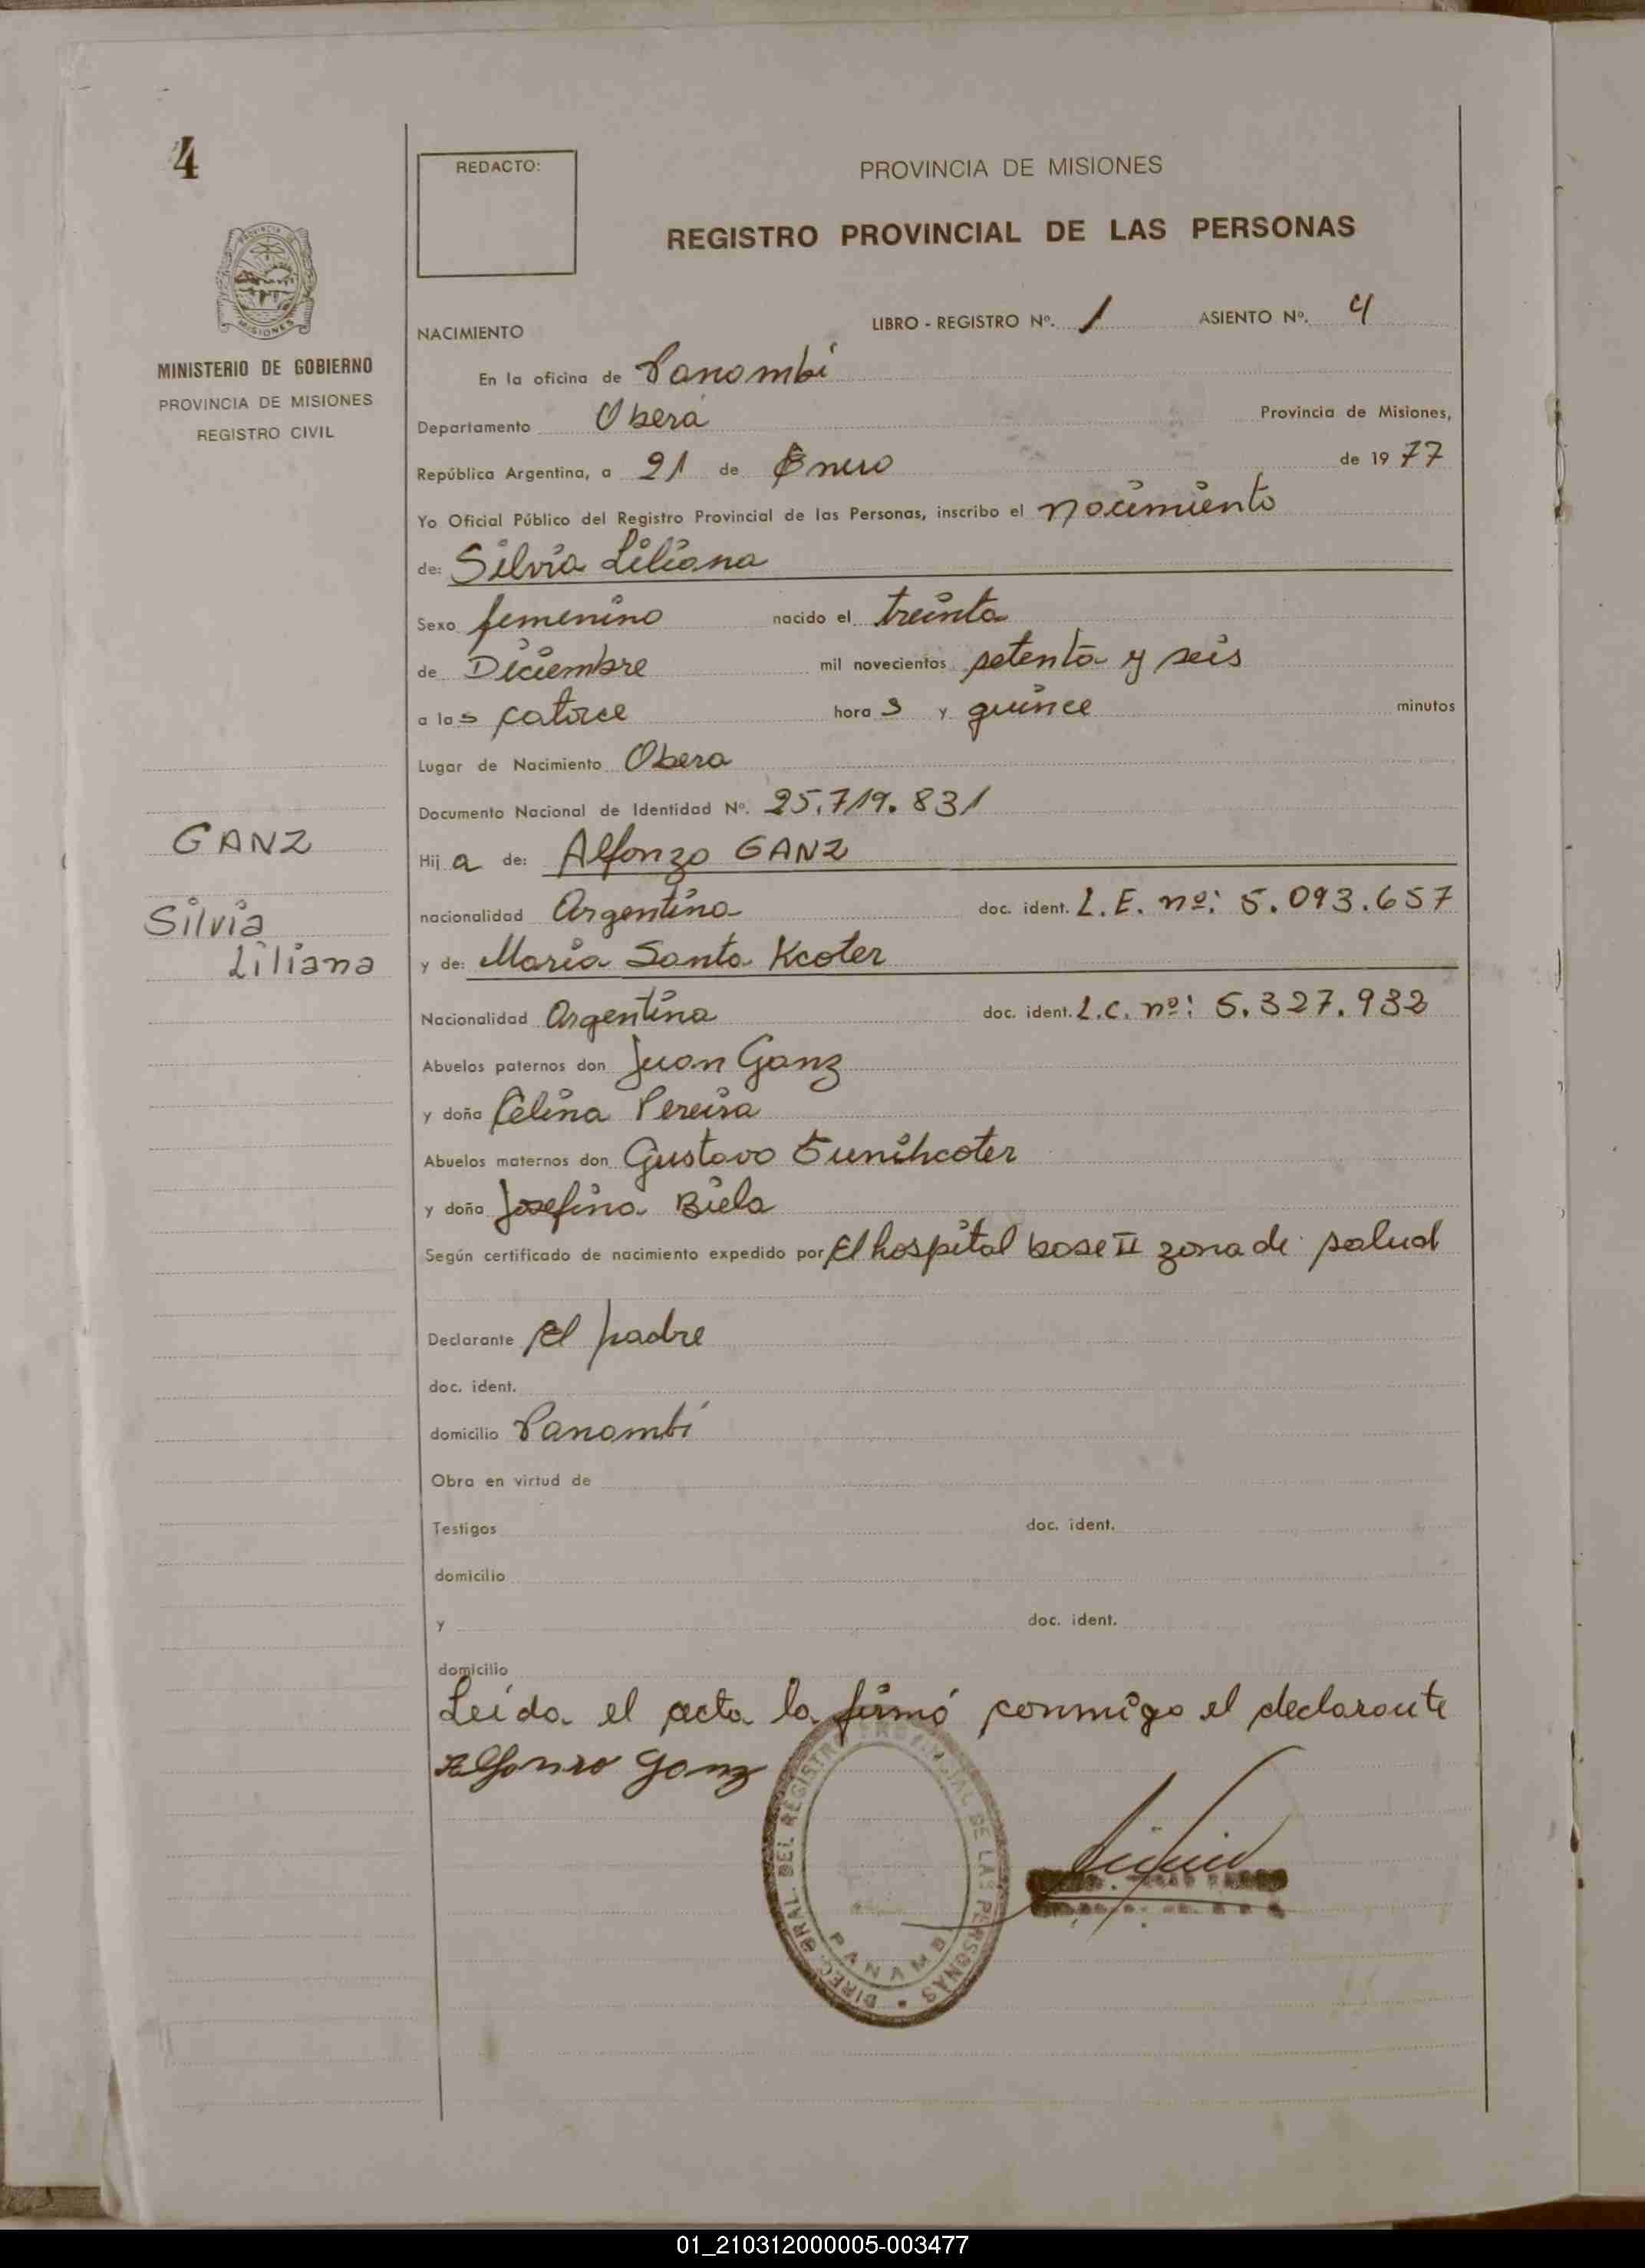 4
REDACTO:
PROVINCIA DE MISIONES
REGISTRO PROVINCIAL DE LAS PERSONAS
PROVINCIA DE
MISIONES
MINISTERIO DE GOBIERNO
PROVINCIA DE MISIONES
REGISTRO CIVIL
NACIMIENTO LIBRO - REGISTRO Nº. 1 ASIENTO Nº. 4
En la oficina de Panambí
Departamento Oberá Provincia de Misiones,
República Argentina, a 21 de Enero de 19 77
Yo Oficial Público del Registro Provincial de las Personas, inscribo el nacimiento
de: Silvia Liliana
Sexo femenino nacido el treinta
de Diciembre mil novecientos setenta y seis
a las catorce horas y quince minutos
Lugar de Nacimiento Obera
Documento Nacional de Identidad Nº. 25.719.831
GANZ
Silvia
Liliana
Hija de: Alfonzo GANZ
nacionalidad Argentina doc. ident. L.E. nº: 5.093.657
y de: Maria Santa Kcoter
Nacionalidad Argentina doc. ident. L.C. nº: 5.327.932
Abuelos paternos don Juan Ganz
y doña Celina Pereira
Abuelos maternos don Gustavo
y doña Josefina Biela
Según certificado de nacimiento expedido por El hospital base II zona de salud
Declarante El padre
doc. ident.
domicilio Panambí
Obra en virtud de
Testigos doc. ident.
domicilio
y doc. ident.
domicilio
Leída el acta la firmó conmigo el declarante
Alfonso Ganz
DIREC. GRAL. DEL REGISTRO PROVINCIAL DE LAS PERSONAS
PANAMB
01_210312000005-003477